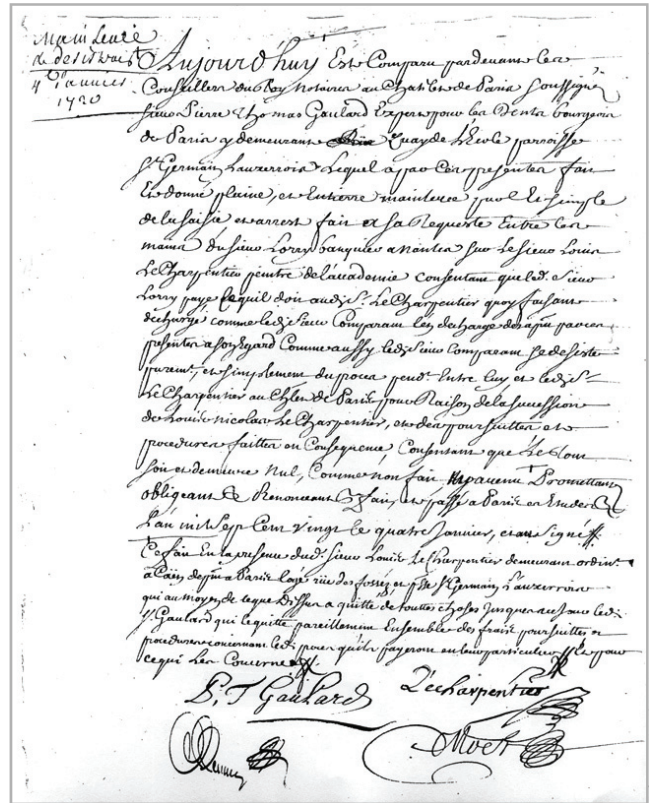 Main Levée
de desistat
4e janvier
1720
Aujourd'huy Est Comparu pardevant les
Conseillers du Roy Notaires au Chalet de Paris soussignés
sieur Pierre Thomas Gaulard Expert pour les Dents bourgeois
de Paris y demeurant Quay de L'Ecole parroisse
St Germain Lauxerrois Lequel a par ces presentes fait
Et donné plaine, et Entierre mainlevée pure Et simple
de la saisie et arrest fait a sa Requeste Entre les
mains du sieur Lorry banquier a Nantes sur Le sieur Louis
Le Charpentier peintre de l'accademie consentant que led. sieur
Lorry paye ce quil doit aud. s. Le Charpentier quoy faisant
dechargé comme led. sieur Comparant len decharge des apnt par ces
presentes a son Egard Comme aussy led. sieur comparant se desiste
puremt. et simplement du proces pendt. Entre luy et led. s.
Le Charpentier au Chlet de Paris pour Raison de la succession
de Louis Nicolas Le Charpentier, et des poursuittes et
procedures faittes en Consequence Consentant que Le tout
soit et demeure Nul, Comme non fait Promettant
obligeant & Renonceant & fait, et passé a Paris en Etudes
L'an mil sept cent vingt le quatre Janvier, et ont signé
Ce fait En la presence dud. sieur Louis Le Charpentier demeurant ordint.
a Caën de pnt a Paris logé rue des fossez et psse St Germain Lauxerrois
qui au moyen de ce que Dessus a quitté de touttes choses Jusques a ce Jour led.
s. Gaulard qui le quitte pareillement Ensemble des frais poursuittes et
procedures concernant led. proces quils payeront en leur particulier pour
ce qui Les Concerne
P. T Gaulard
Lecharpentier
Moet